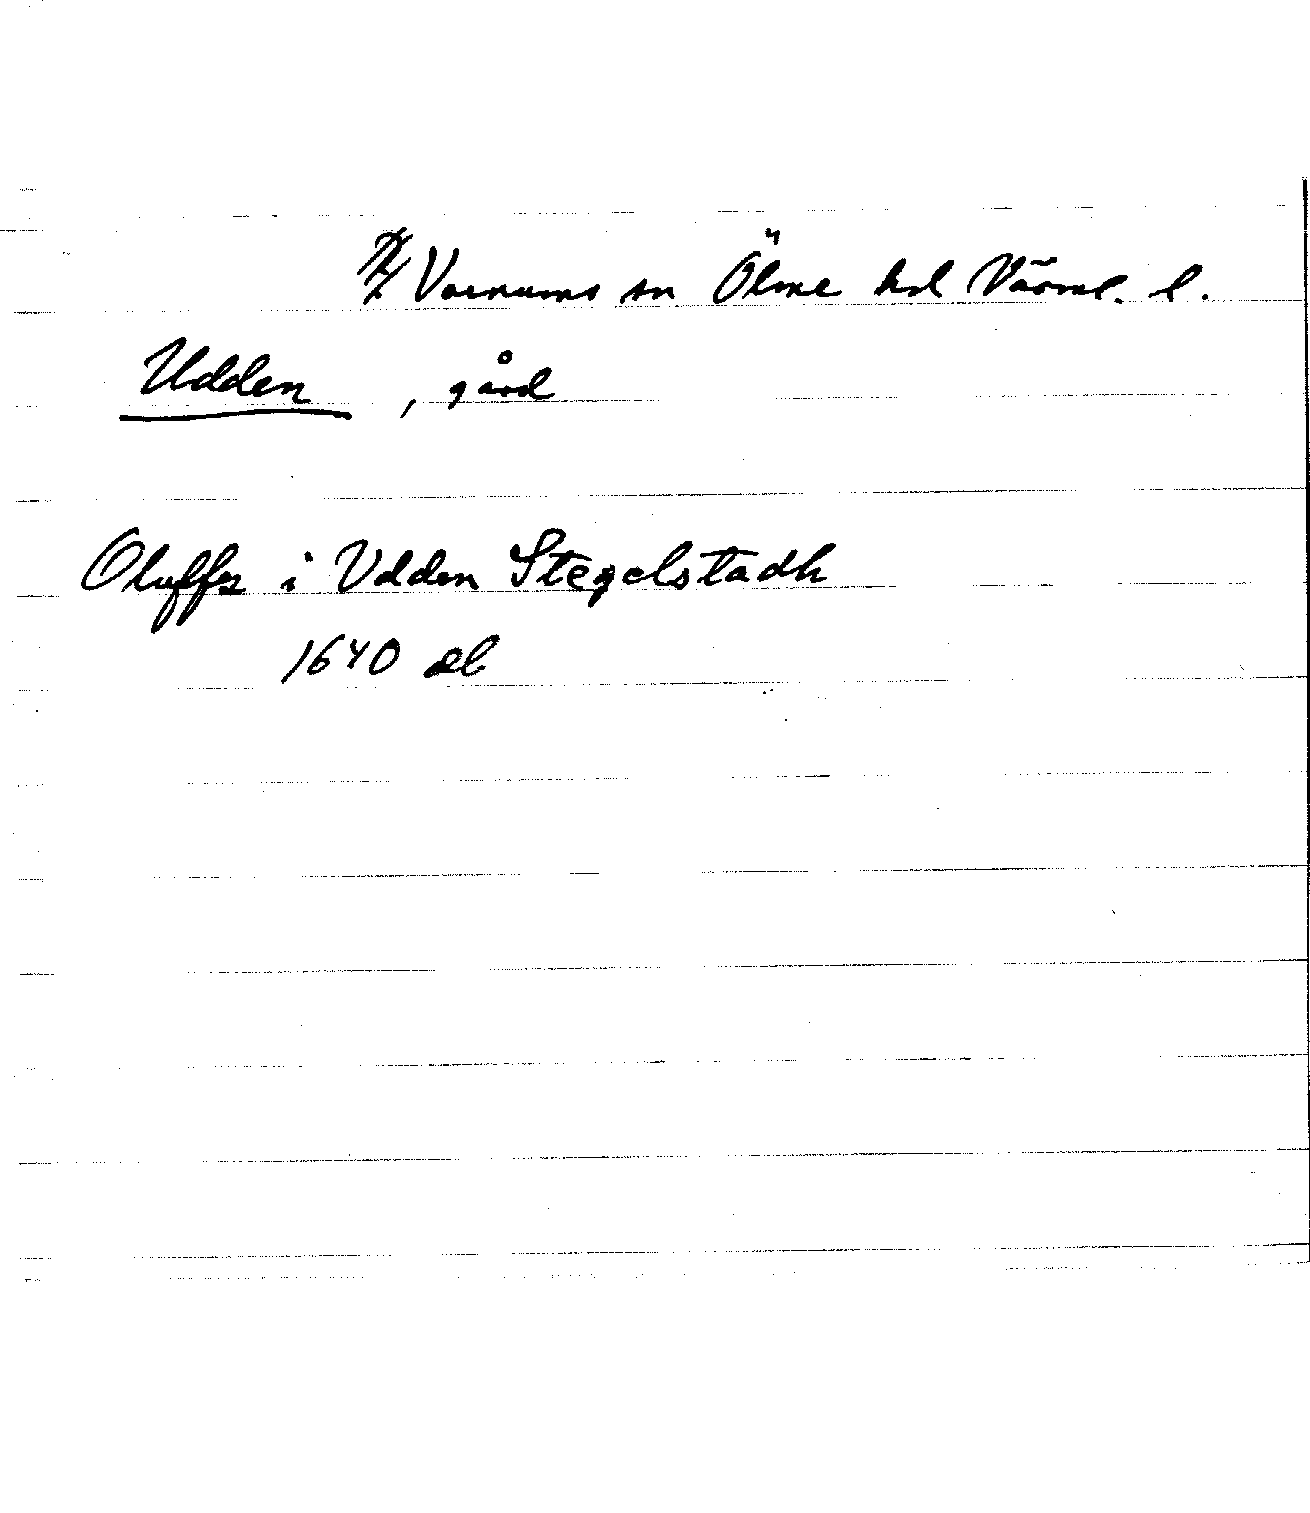 Varnums sn Ölme hd Värml. l.
Udden, gård
Oluffz i Vdden Stegelstadh
1640 db